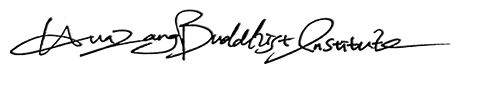 Huazang Buddhist Institute